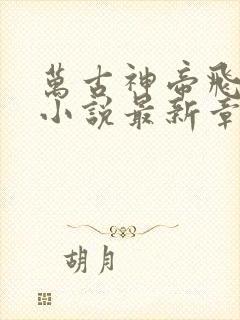 萬古神帝飛
小說最新章
胡月